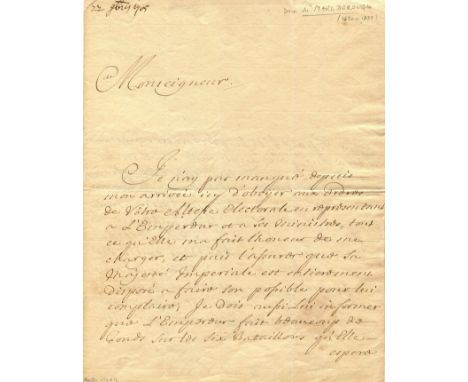 9bre 1705
Duc de MARLBOROUGH
(1650-1722)
Monseigneur
Je n'ay pas manqué depuis
mon arrivée icy d'obeyer aux ordres
de Votre Altesse Electorale en representant
a L'Empereur et a ses Ministres, tout
ce qu'Elle m'a fait l'honneur de me
charger, et puis l'assurer que Sa
Majesté Imperiale est entierement
disposé a faire son possible pour lui
complaire; Je dois aussi lui informer
que L'Empereur fait beaucoup de
fonds sur les six Bataillons qu'Elle
espere